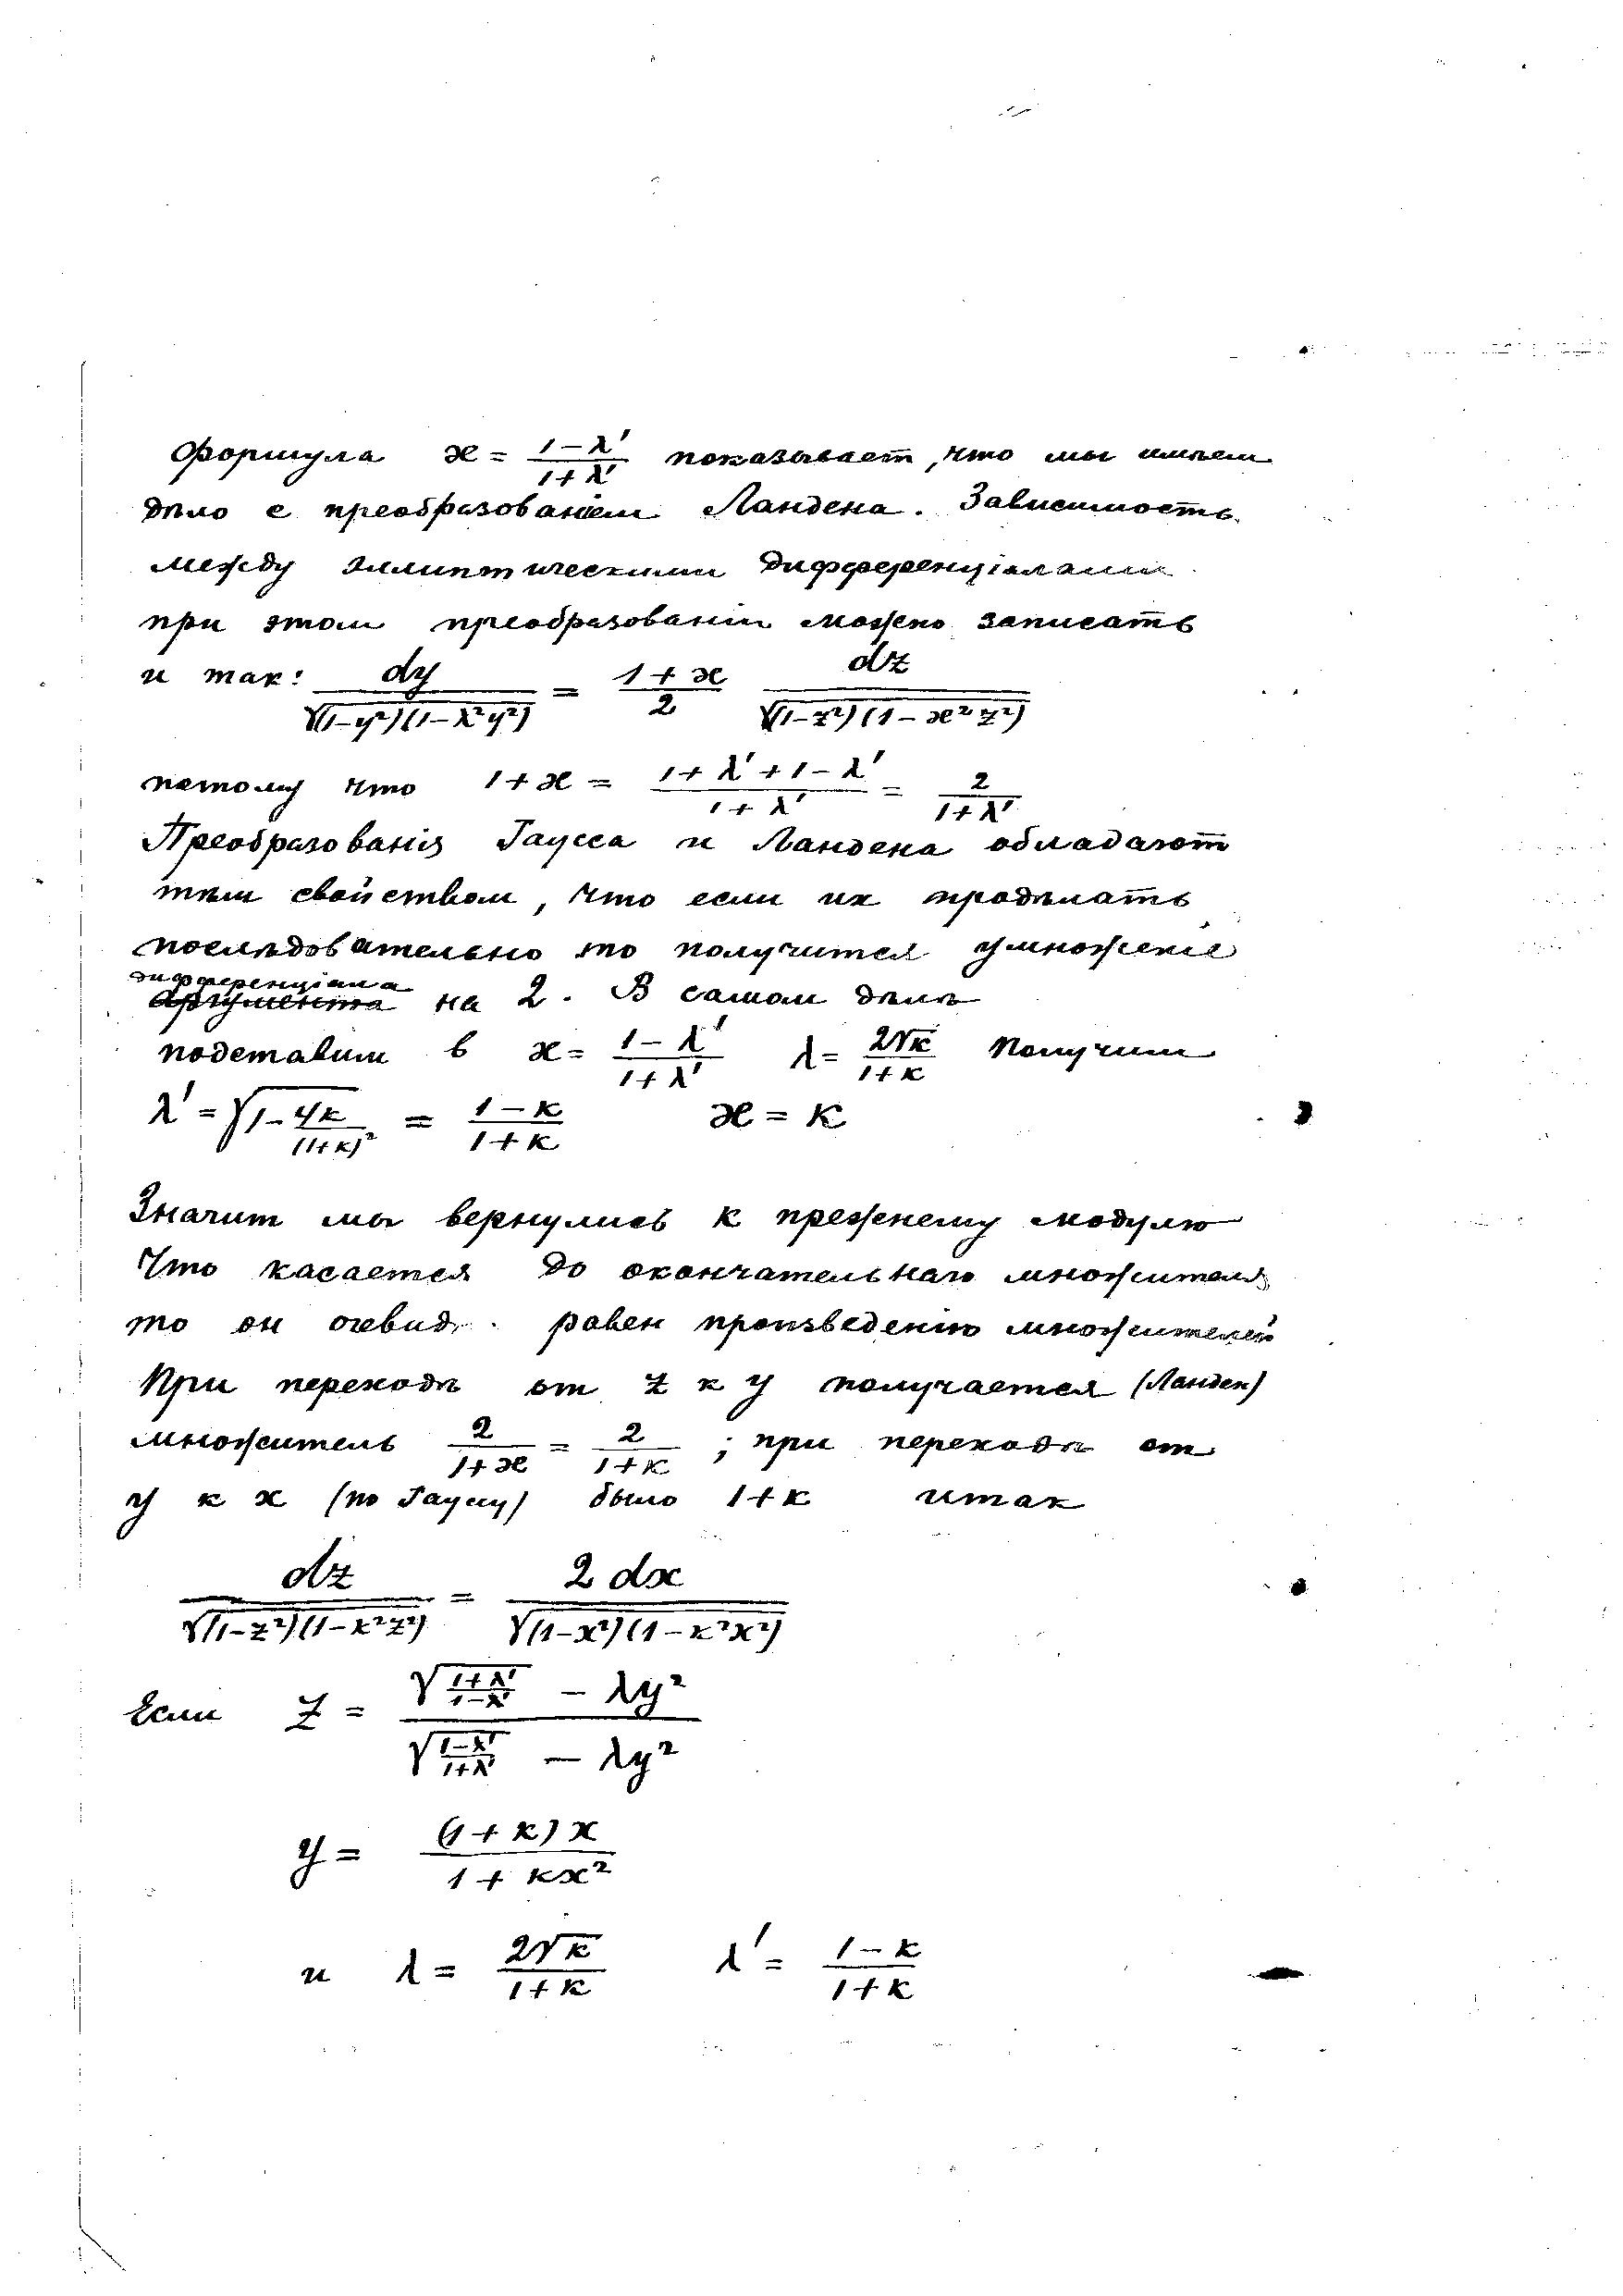 Формула ϰ = (1 − λ′)/(1 + λ′) показывает, что мы имѣем
дѣло с преобразованіем Ландена. Зависимость
между эллиптическими дифференціалами
при этом преобразованіи можно записать
и так: dy/√((1−y²)(1−λ²y²)) = (1 + ϰ)/2 dz/√((1−z²)(1−ϰ²z²))
потому что 1 + ϰ = (1 + λ′ + 1 − λ′)/(1 + λ′) = 2/(1 + λ′)
Преобразованія Гаусса и Ландена обладают
тѣм свойством, что если их продѣлать
послѣдовательно то получится умноженіе
дифференціала
аргумента на 2. В самом дѣлѣ
подставим в ϰ = (1 − λ′)/(1 + λ′) λ = 2√k/(1 + k) получим
λ′ = √(1 − 4k/(1+k)²) = (1 − k)/(1 + k) ϰ = k
Значит мы вернулись к прежнему модулю
Что касается до окончательнаго множителя
то он очевид. равен произведенію множителей
При переходѣ от z к y получается (Ланден)
множитель 2/(1 + ϰ) = 2/(1 + k) ; при переходѣ от
y к x (по Гауссу) было 1 + k итак
dz/√((1−z²)(1−k²z²)) = 2 dx/√((1−x²)(1−k²x²))
Если z = (√((1+λ′)/(1−λ′)) − λy²)/(√((1−λ′)/(1+λ′)) − λy²)
y = (1 + k) x/(1 + kx²)
и λ = 2√k/(1 + k) λ′ = (1 − k)/(1 + k)